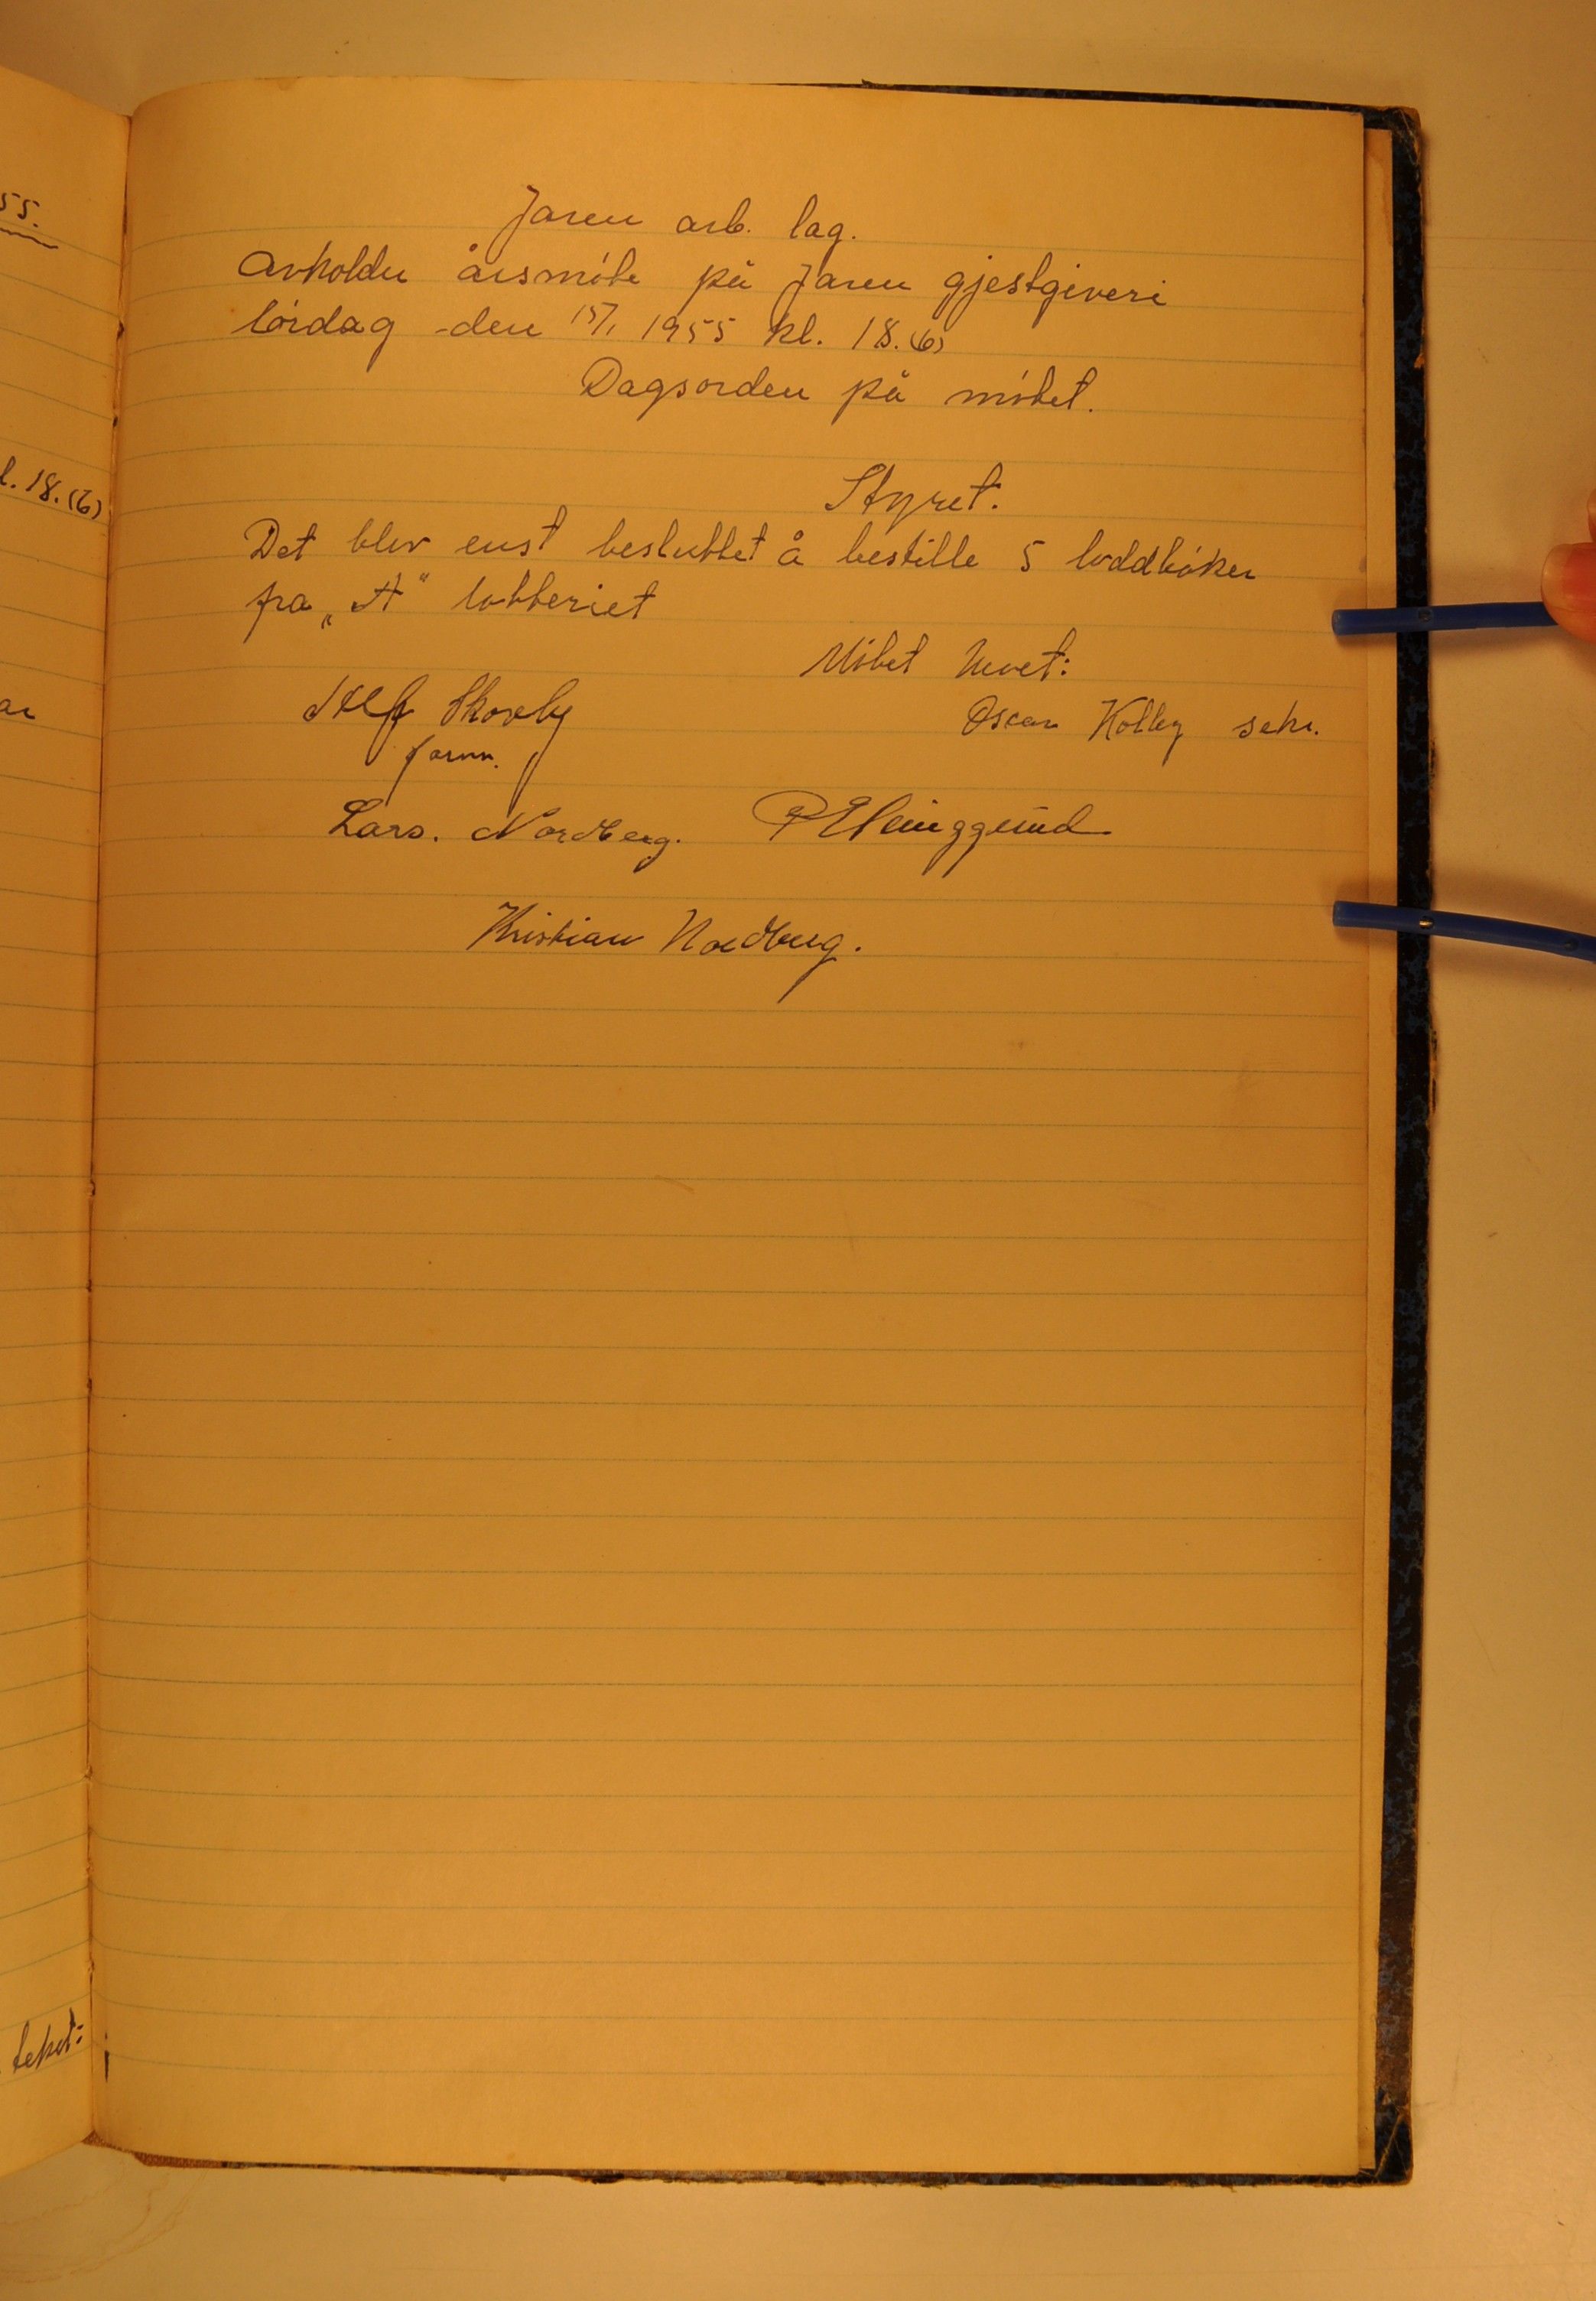 55.
l. 18. (6)
ar
teket:
Jaren arb. lag.
Avholder årsmöte på Jaren gjestgiveri
lördag den 15/1 1955 kl. 18. (6)
Dagsorden på mötet.
Styret.
Det blev enst besluttet å bestille 5 loddböker
fra „A" lotteriet
Mötet hevet:
Skovly Oscar Kolby sekr.
form.
Lars. Nordberg.
Kristian Nordberg.